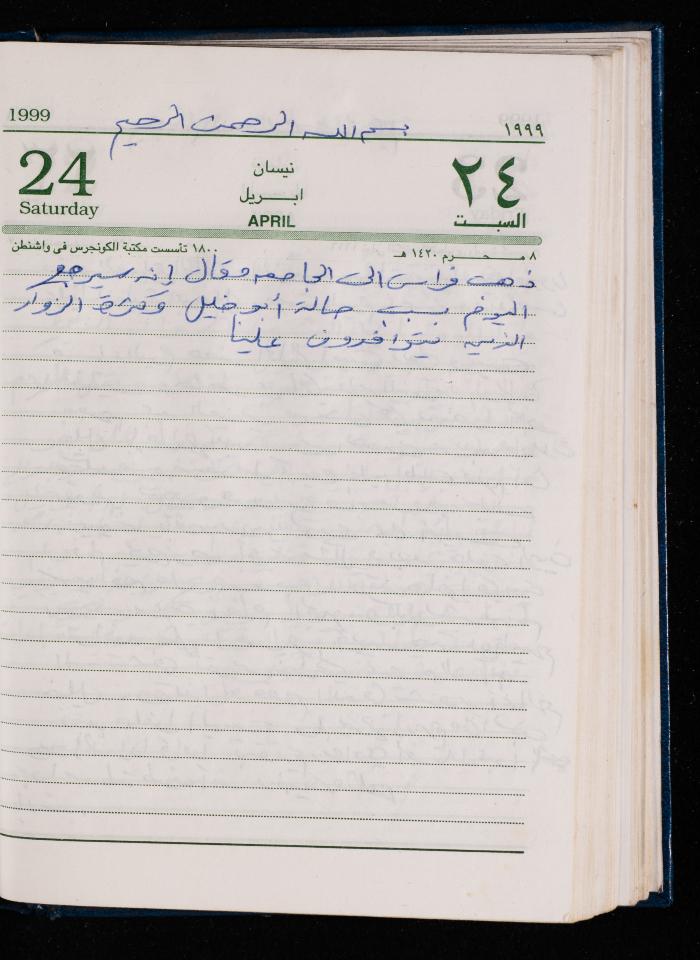 1999
بسم الله الرحمن الرحيم
١٩٩٩
24
Saturday
نيسان
ابـريل
APRIL
٢٤
السبت
٨ محرم ١٤٢٠ هـ
١٨٠٠ تأسست مكتبة الكونجرس فى واشنطن
ذهب فراس الى الجامعه وقال إنه سيرجع
اليوم بسبب حالة أبو خليل وكثرة الزوار
الذين يتوافدون علينا